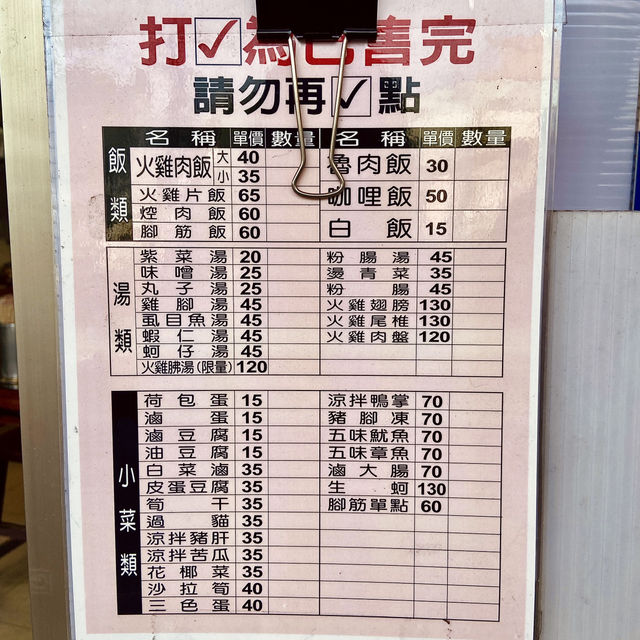 打✓為已售完
請勿再✓點
名稱 單價 數量 名稱 單價 數量
飯類
火雞肉飯 大 40 魯肉飯 30
小 35
火雞片飯 65 咖哩飯 50
焢肉飯 60 白飯 15
腳筋飯 60
湯類
紫菜湯 20 粉腸湯 45
味噌湯 25 燙青菜 35
丸子湯 25 粉腸 45
雞腳湯 45 火雞翅膀 130
虱目魚湯 45 火雞尾椎 130
蝦仁湯 45 火雞肉盤 120
蚵仔湯 45
火雞胇湯(限量) 120
小菜類
荷包蛋 15 涼拌鴨掌 70
滷蛋 15 豬腳凍 70
滷豆腐 15 五味魷魚 70
油豆腐 15 五味章魚 70
白菜滷 35 滷大腸 70
皮蛋豆腐 35 生蚵 130
筍干 35 腳筋單點 60
過貓 35
涼拌豬肝 35
涼拌苦瓜 35
花椰菜 35
沙拉筍 40
三色蛋 40